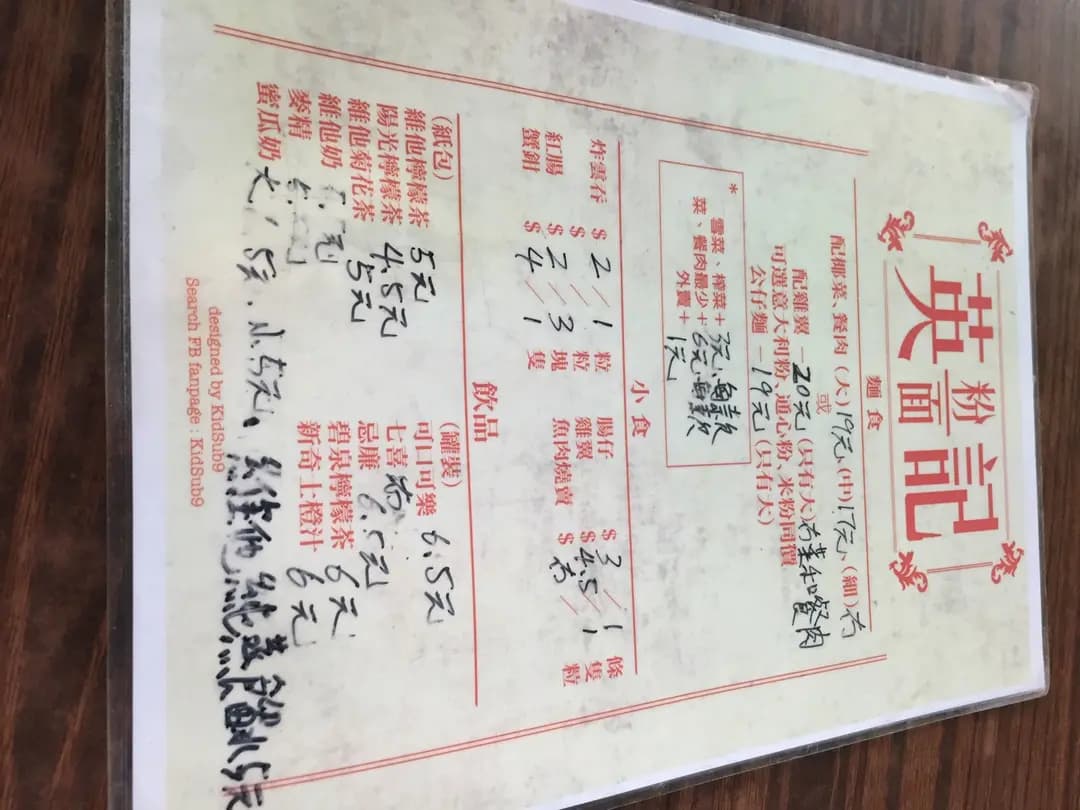 英記
粉面
麵食
配椰菜、餐肉 (大)19元、(中)17元、(細)冇
或
配雞翼 -20元 (只有大)冇菜和餐肉
可選意大利粉、通心粉、米粉同價
公仔麵 -19元 (只有大)
* 雪菜、榨菜+3元
菜、餐肉最少+6元
外賣+1元
小食
炸雲吞 $2/1粒 腸仔 $3/1條
紅腸 $2/3粒 雞翼 $4.5/1隻
$ 塊 魚肉燒賣 $冇/ 粒
蟹鉗 $4/1隻
飲品
(紙包) (罐裝)
維他檸檬茶 5元 可口可樂 6.5元
陽光檸檬茶 4.5元 七喜 冇
維他菊花茶 5元 忌廉 6.5元
維他奶 碧泉檸檬茶 6元
麥精 新奇士橙汁 6元
蜜瓜奶 大,5元.小5元。
5元
designed by KidSub9
Search FB fanpage : KidSub9